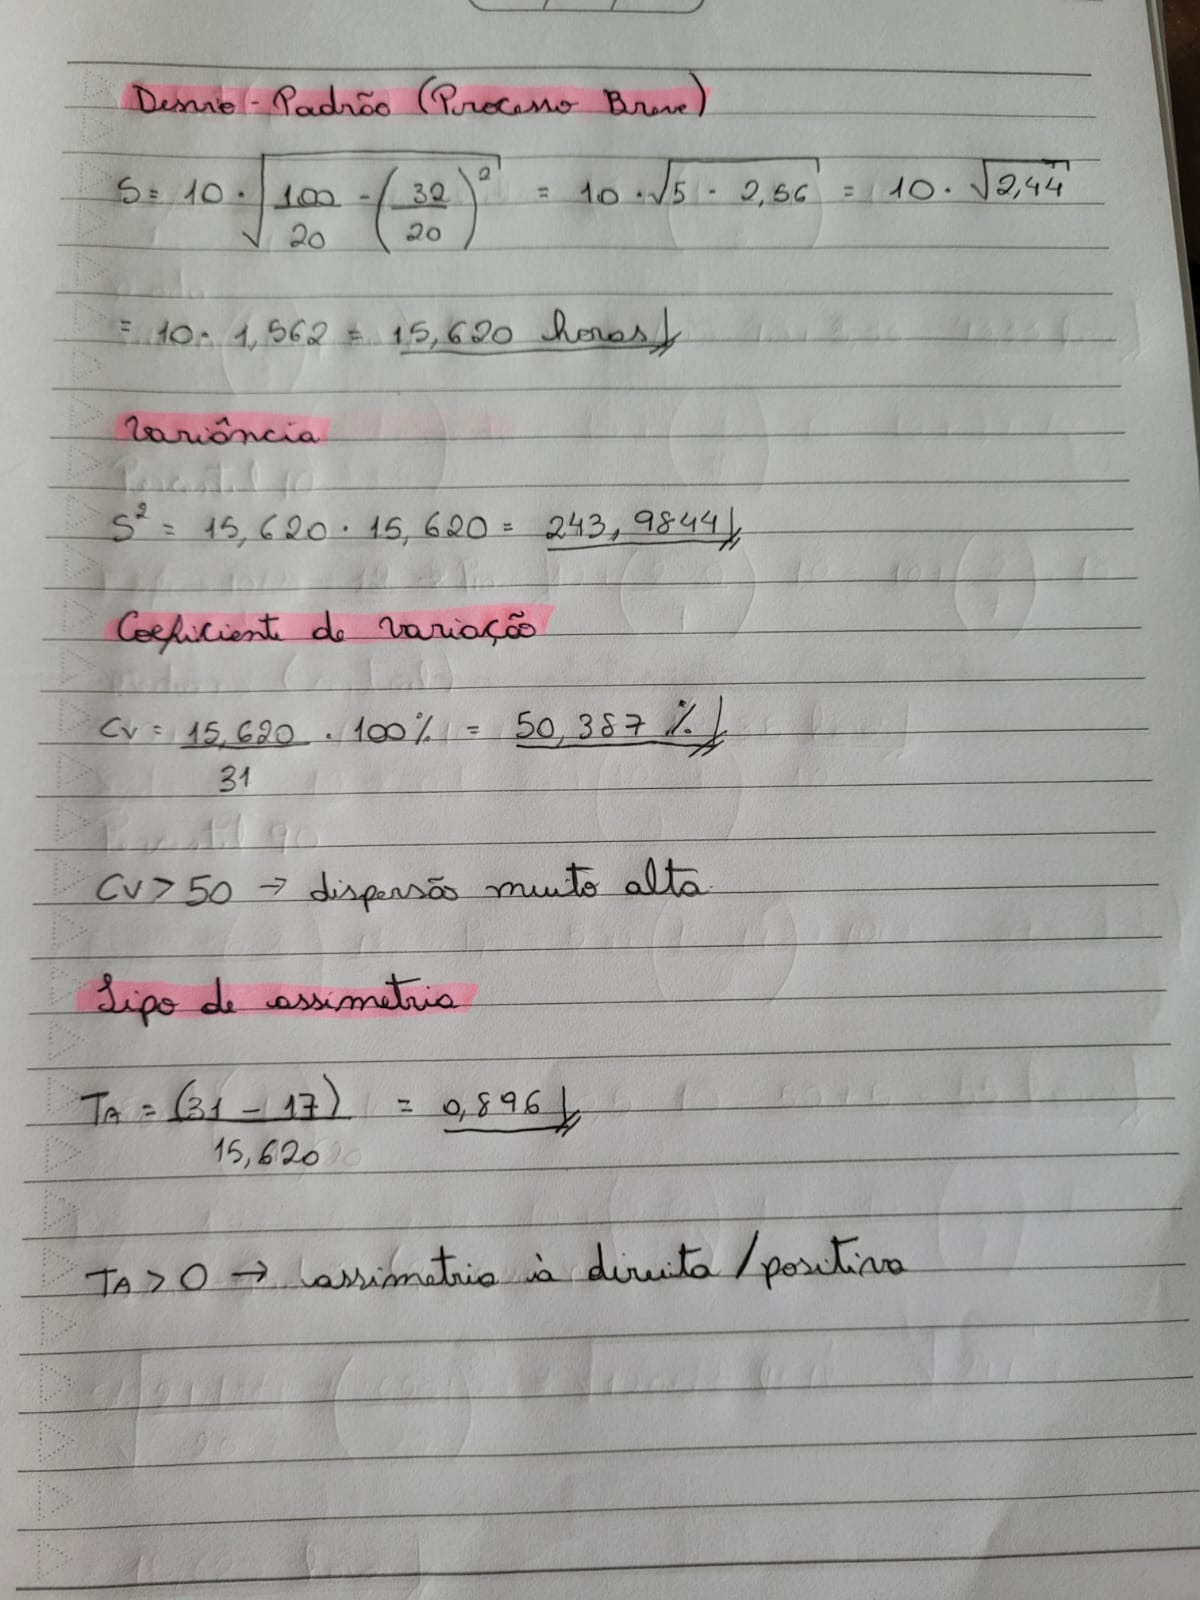 Desvio-Padrão (Processo Breve)
S = 10 · √(100/20 - (32/20)²) = 10 · √(5 - 2,56) = 10 · √2,44
= 10 · 1,562 = 15,620 horas
Variância
S² = 15,620 · 15,620 = 243,9844
Coeficiente de variação
CV = 15,620/31 · 100% = 50,387 %
CV > 50 → dispersão muito alta
Tipo de assimetria
TA = (31 - 17)/15,620 = 0,896
TA > 0 → assimetria à direita / positiva